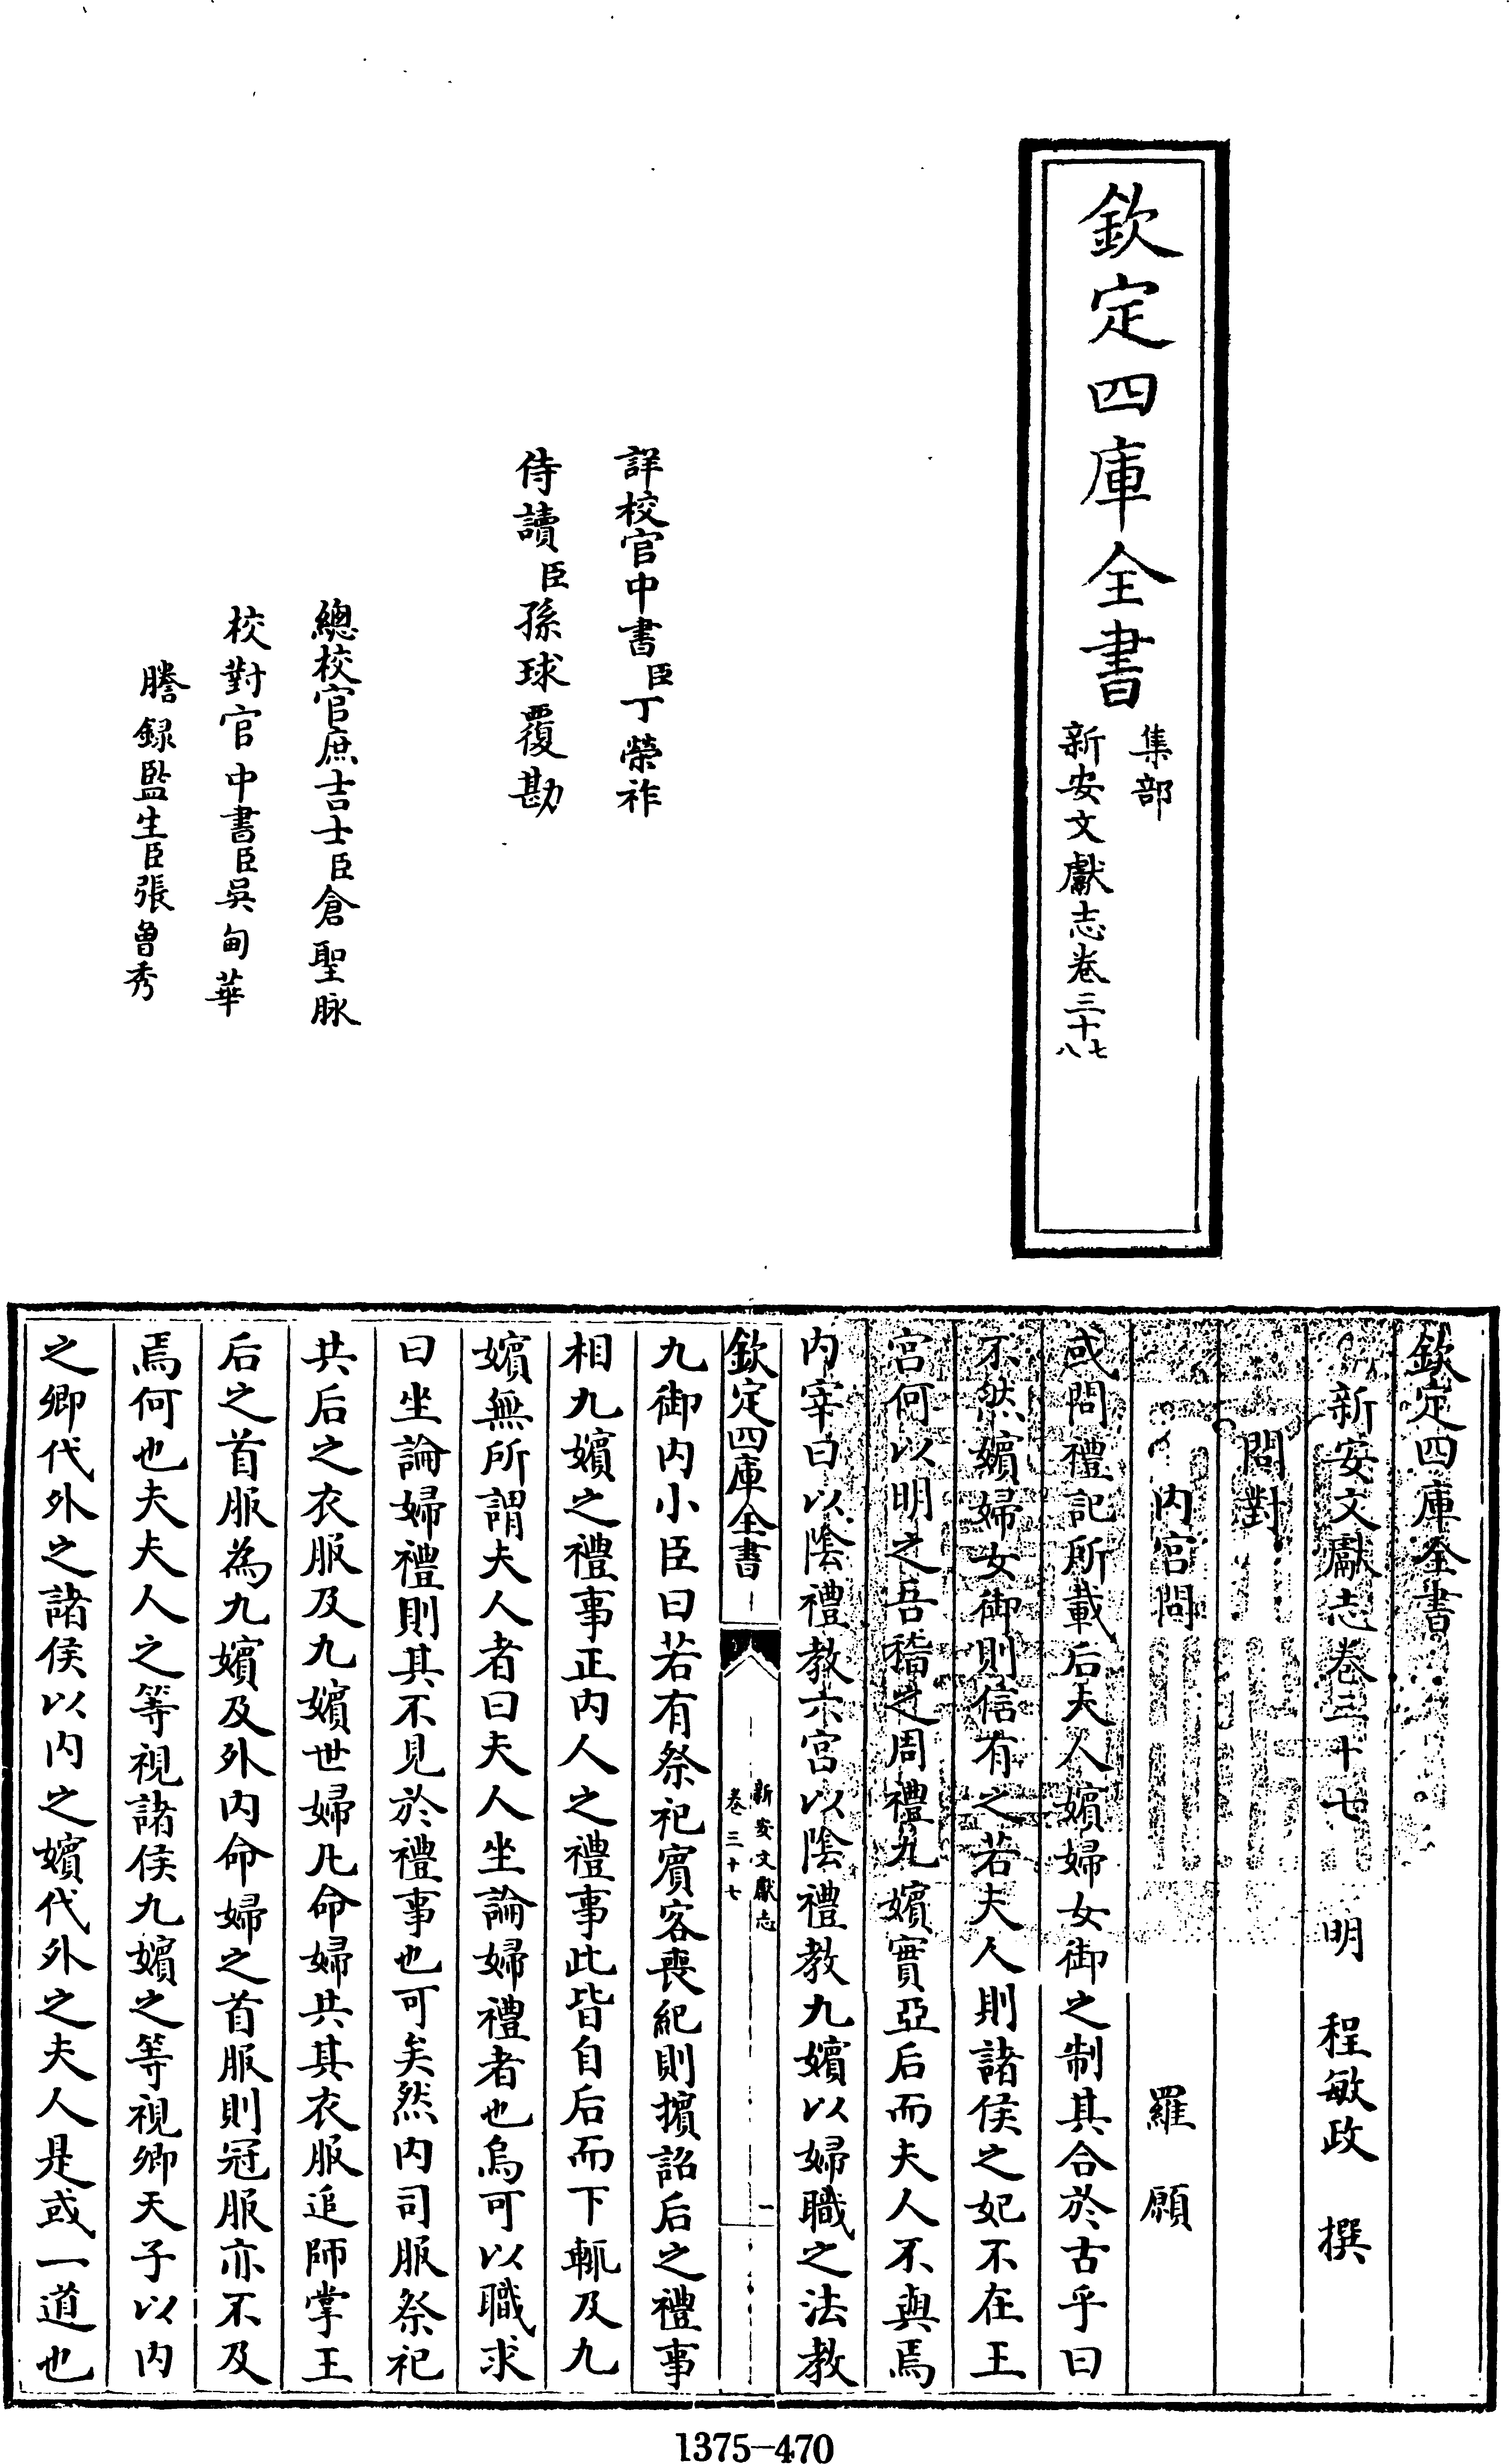 欽定四庫全書
集部
新安文獻志卷三十七八
詳校官中書臣丁榮祚
侍讀臣孫球覆勘
總校官庶吉士臣倉聖脉
校對官中書臣吳甸華
謄録監生臣張曾秀
欽定四庫全書
新安文獻志卷三十七 明 程敏政 撰
問對
内宫問 羅願
或問禮記所載后夫人嬪婦女御之制其合於古乎曰
不然嬪婦女御則信有之若夫人則諸侯之妃不在王
宫何以明之吾稽之周禮九嬪實亞后而夫人不與焉
内宰曰以隂禮教六宫以隂禮教九嬪以婦職之法教
欽定四庫全書
新安文獻志
卷三十七
一
九御内小臣曰若有祭祀賔客喪紀則擯詔后之禮事
相九嬪之禮事正内人之禮事此皆自后而下輒及九
嬪無所謂夫人者曰夫人坐論婦禮者也烏可以職求
曰坐論婦禮則其不見於禮事也可矣然内司服祭祀
共后之衣服及九嬪世婦凡命婦共其衣服追師掌王
后之首服為九嬪及外内命婦之首服則冠服亦不及
焉何也夫夫人之等視諸侯九嬪之等視卿天子以内
之卿代外之諸侯以内之嬪代外之夫人是或一道也
1375-470